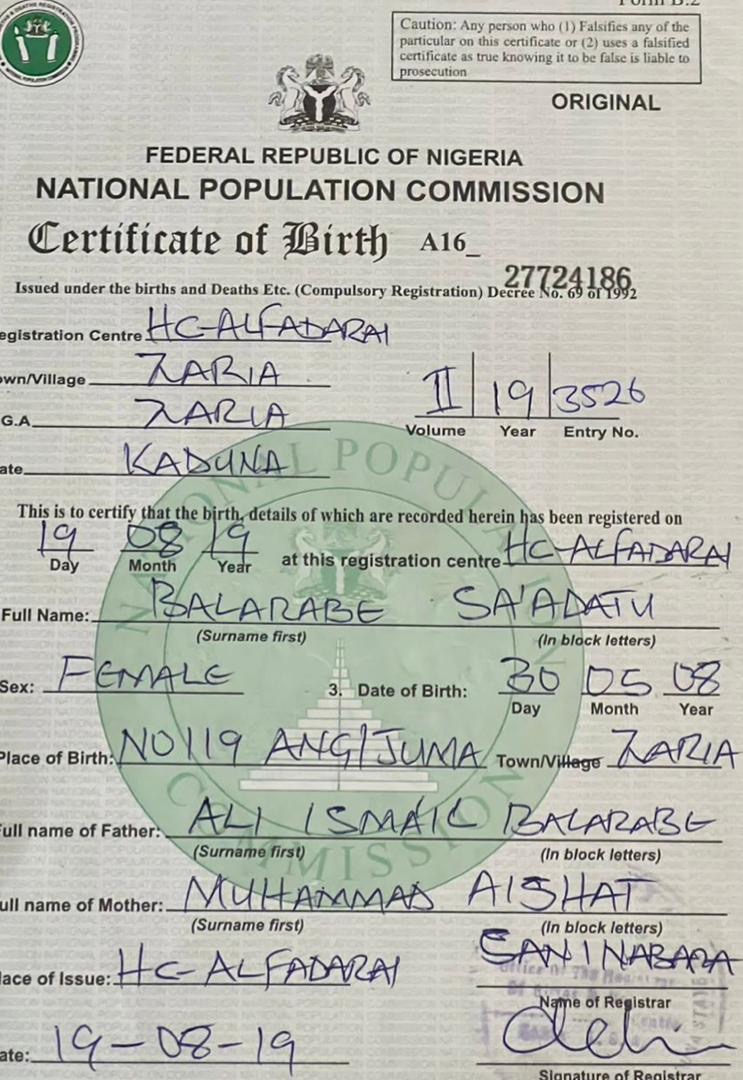 Caution: Any person who (1) Falsifies any of the
particular on this certificate or (2) uses a falsified
certificate as true knowing it to be false is liable to
prosecution
ORIGINAL
FEDERAL REPUBLIC OF NIGERIA
NATIONAL POPULATION COMMISSION
Certificate of Birth A16_
27724186
Issued under the births and Deaths Etc. (Compulsory Registration) Decree No. 69 of 1992
egistration Centre HC-ALFADARAI
wn/Village ZARIA
G.A ZARIA
II 19 3526
Volume Year Entry No.
ate KADUNA
This is to certify that the birth, details of which are recorded herein has been registered on
19 08 19 at this registration centre HC-ALFADARAI
Day Month Year
Full Name: BALARABE SA'ADATU
(Surname first) (In block letters)
Sex: FEMALE 3. Date of Birth: 30 05 08
Day Month Year
Place of Birth: NO119 ANG/JUMA Town/Village ZARIA
Full name of Father: ALI ISMAIL BALARABE
(Surname first) (In block letters)
ull name of Mother: MUHAMMAD AISHAT
(Surname first) (In block letters)
lace of Issue: HC-ALFADARAI SANI NABARA
Name of Registrar
ate: 19-08-19
Signature of Registrar
NATIONAL POPULATION COMMISSION